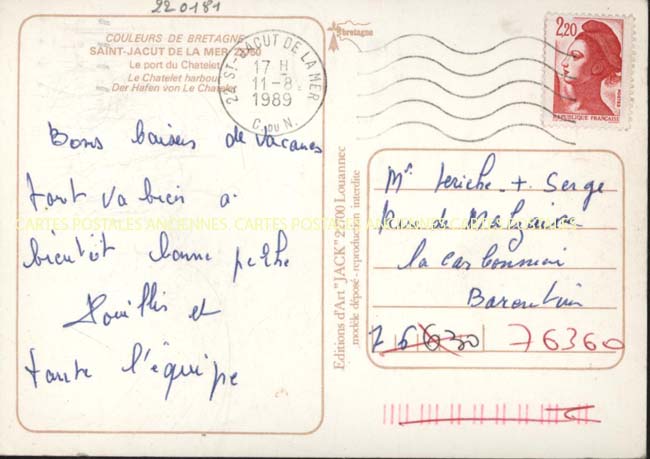 220181
COULEURS DE BRETAGNE
SAINT-JACUT DE LA MER 22750
Le port du Chatelet
Le Chatelet harbour
Der Hafen von Le Chatelet
22 ST-JACUT DE LA MER
17 H
11-8
1989
C. DU N.
bretagne
2,20
REPUBLIQUE FRANCAISE
Bons baisers de vacances
tout va bien a
bientôt bonne peche
et
toute l'équipe
Editions d'Art "JACK" 22700 Louannec
modèle déposé - reproduction interdite
Mr Leriche + Serge
Rue de
la
Barentin
76630 76360
CARTES POSTALES ANCIENNES CARTES POSTALES ANCIENNES CARTES POSTALES ANCIENNES